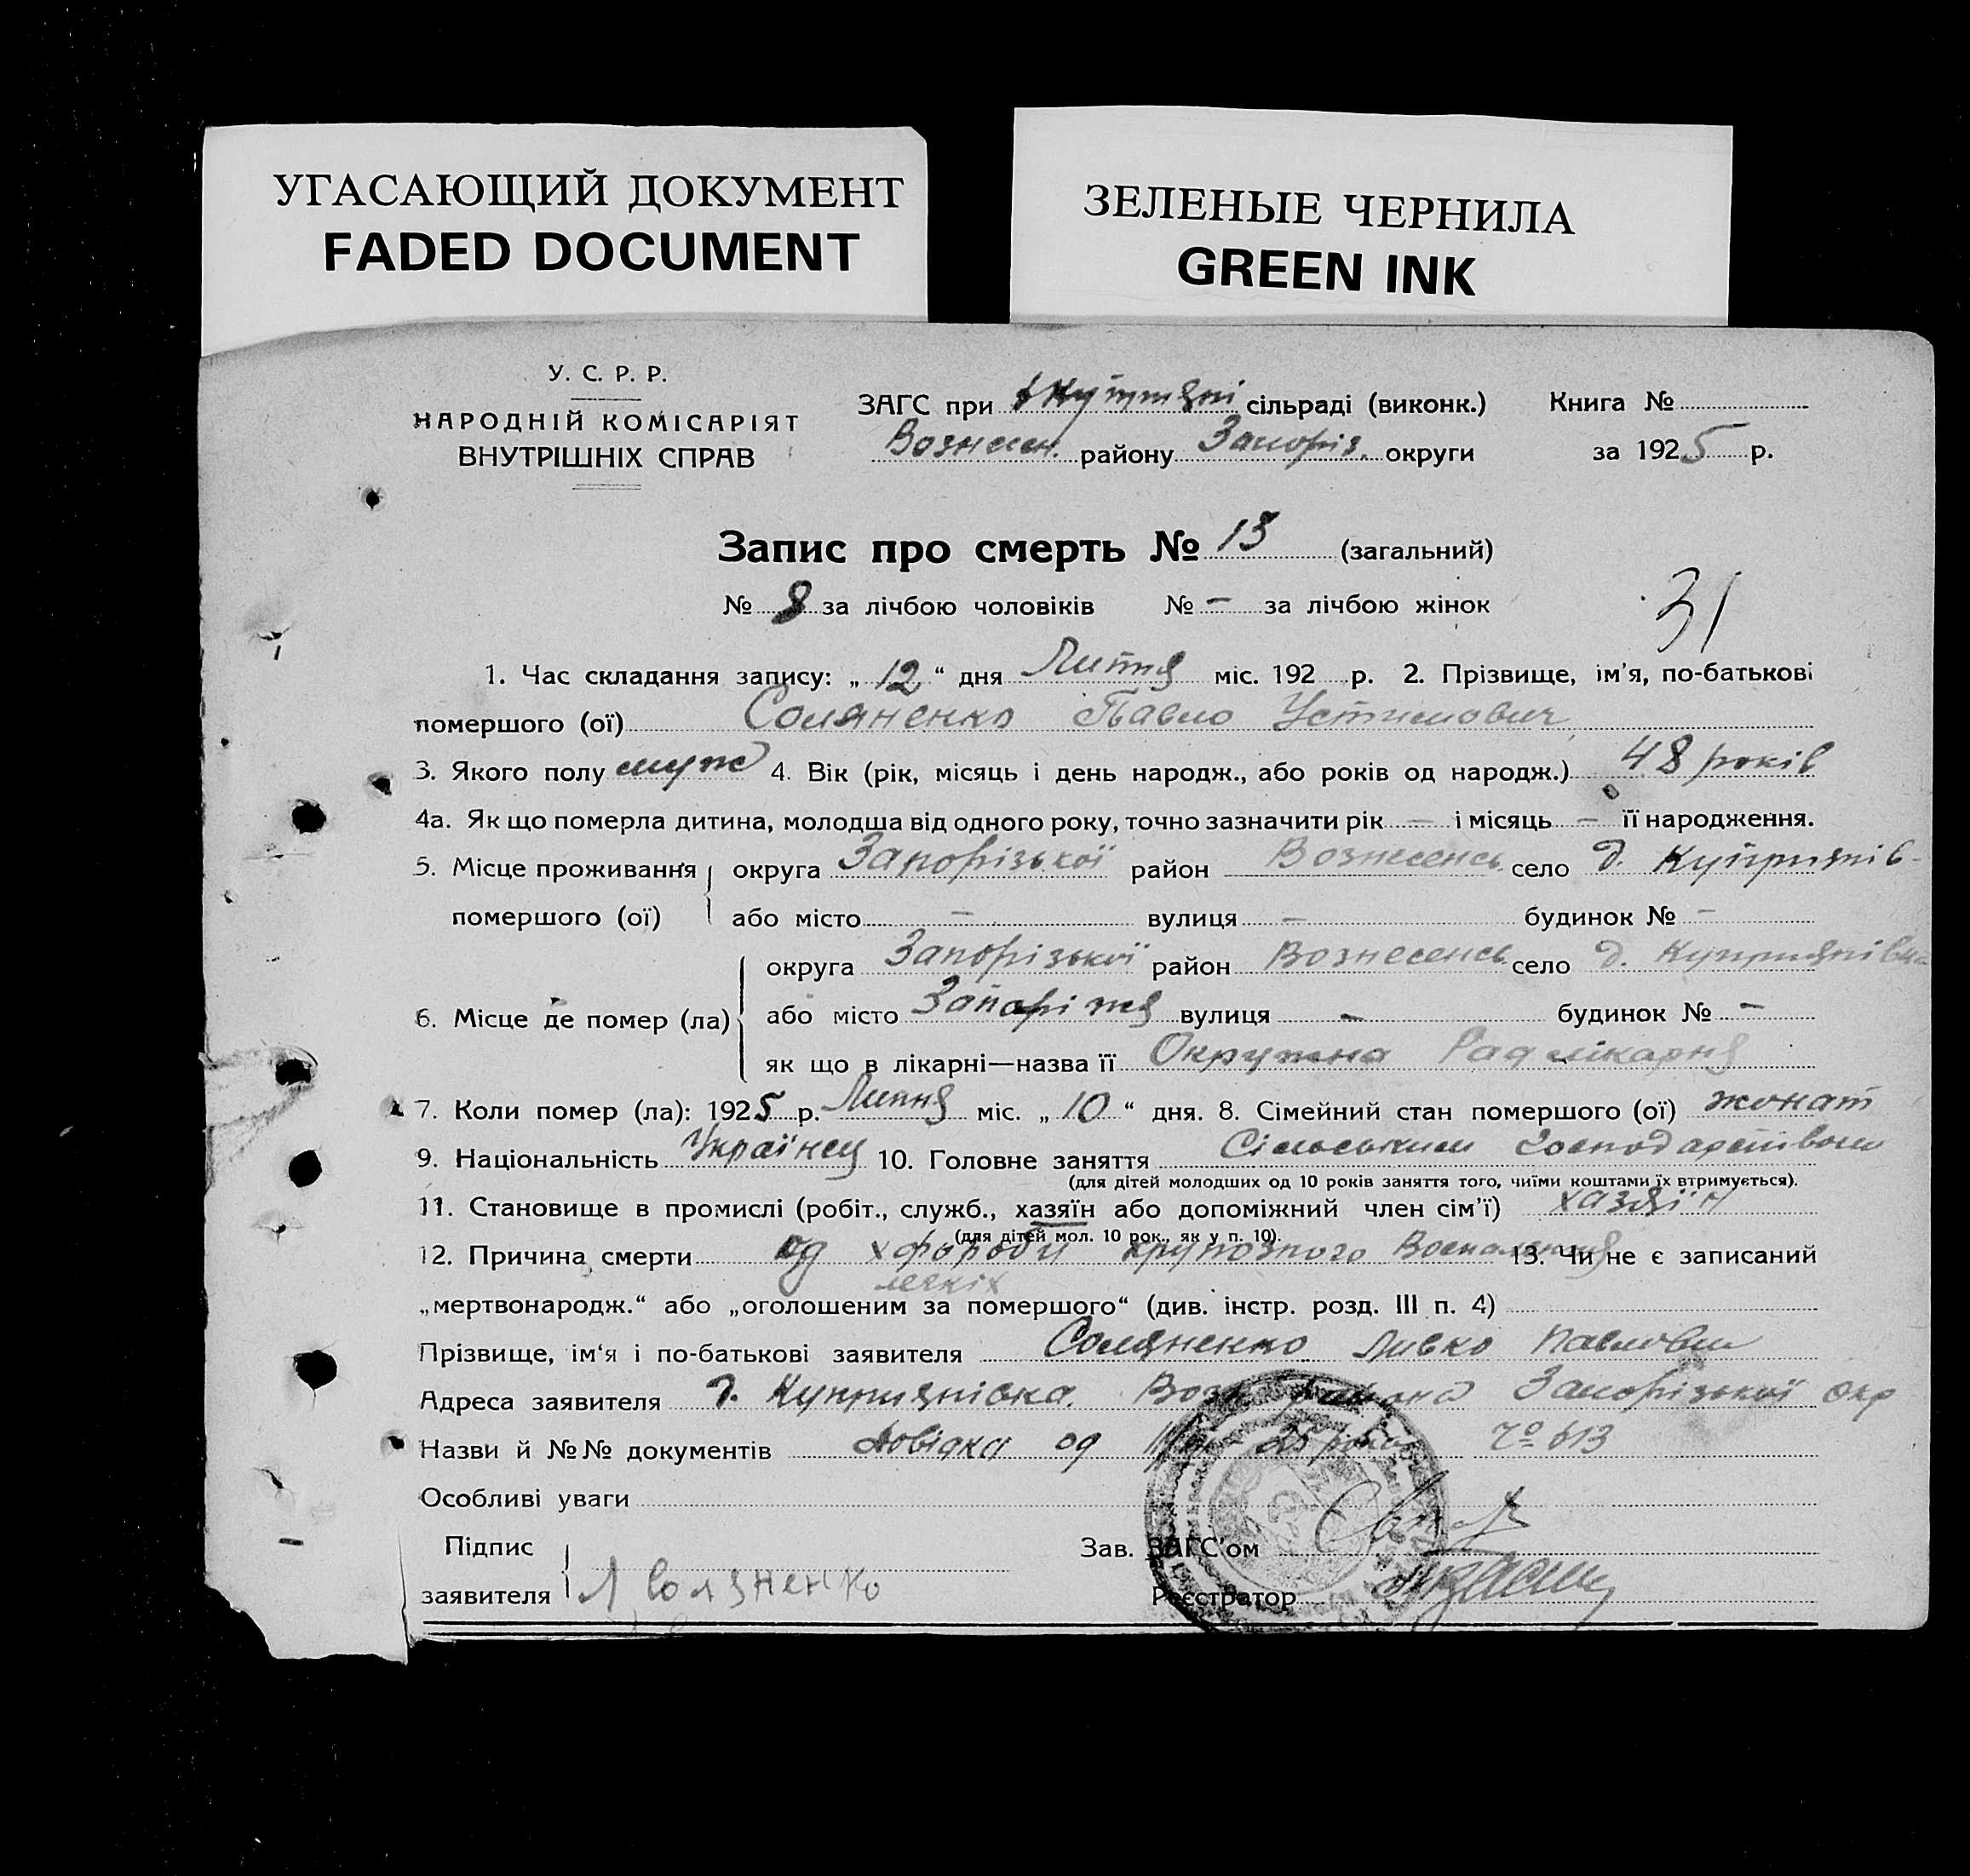 УГАСАЮЩИЙ ДОКУМЕНТ
FADED DOCUMENT
ЗЕЛЕНЫЕ ЧЕРНИЛА
GREEN INK
У. С. Р. Р.
НАРОДНІЙ КОМІСАРІЯТ
ВНУТРІШНІХ СПРАВ
ЗАГС при сільраді (виконк.) Книга №
Вознесен. району Запоріз. округи за 1925 р.
Запис про смерть № 13 (загальний)
№ 8 за лічбою чоловіків № – за лічбою жінок
31
1. Час складання запису: „ 12 “ дня Липня міс. 192 р. 2. Прізвище, ім'я, по-батькові
помершого (ої) Соляненко Павло Устимович
3. Якого полу муж 4. Вік (рік, місяць і день народж., або років од народж.) 48 років
4а. Як що померла дитина, молодша від одного року, точно зазначити рік – і місяць – її народження.
5. Місце проживання округа Запорізької район Вознесенсь село д. Куприянів-
помершого (ої) або місто – вулиця – будинок № –
округа Запорізької район Вознесенсь село д. Куприянівка
6. Місце де помер (ла) або місто Запоріжя вулиця – будинок № –
як що в лікарні—назва її Окружна Рад лікарня
7. Коли помер (ла): 1925 р. Липня міс. „ 10 “ дня. 8. Сімейний стан помершого (ої) жонат
9. Національність Українец 10. Головне заняття Сільським господарством
(для дітей молодших од 10 років заняття того, чиїми коштами їх втримується).
11. Становище в промислі (робіт., служб., хазяїн або допоміжний член сім'ї) хазяїн
(для дітей мол. 10 рок., як у п. 10).
12. Причина смерти од крупозного 13. Чи не є записаний
легкіх
„мертвонародж.“ або „оголошеним за помершого“ (див. інстр. розд. III п. 4)
Прізвище, ім'я і по-батькові заявителя Соляненко Левко Павлович
Адреса заявителя д. Куприянівка. Возн. района Запорізької окр
Назви й №№ документів довідка од 25 року 613
Особливі уваги
Підпис Зав. ЗАГС'ом
заявителя Л Соляненко Реєстратор